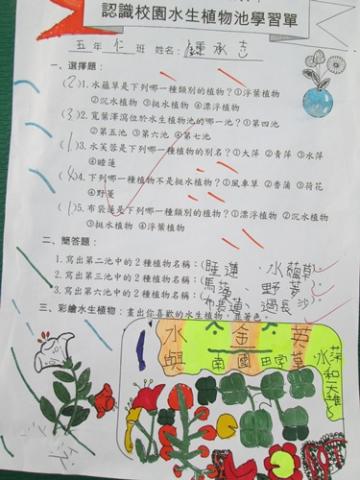 認識校園水生植物池學習單
五年 仁 班 姓名：鍾承吉
一、選擇題：
(2)1.水蘊草是下列哪一種類別的植物？①浮葉植物
②沉水植物 ③挺水植物 ④漂浮植物
(3)2.寬葉澤瀉位於水生植物池的哪一池？①第四池
②第五池 ③第六池 ④第七池
(1)3.水芙蓉是下列哪一種植物的別名？①大萍 ②青萍 ③水萍
④睡蓮
(4)4.下列哪一種植物不是挺水植物？①風車草 ②香蒲 ③荷花
④野薑
(1)5.布袋蓮是下列哪一種類別的植物？①漂浮植物 ②沉水植物
③挺水植物 ④浮葉植物
二、簡答題：
1.寫出第二池中的2種植物名稱：(睡蓮、水蘊草)
2.寫出第三池中的2種植物名稱：(馬藻、野薑)
3.寫出第六池中的2種植物名稱：(布袋蓮、過長沙)
三、彩繪水生植物：畫出你喜歡的水生植物，並著色。
水 金 英
與 南國田字草
水萍和天雄